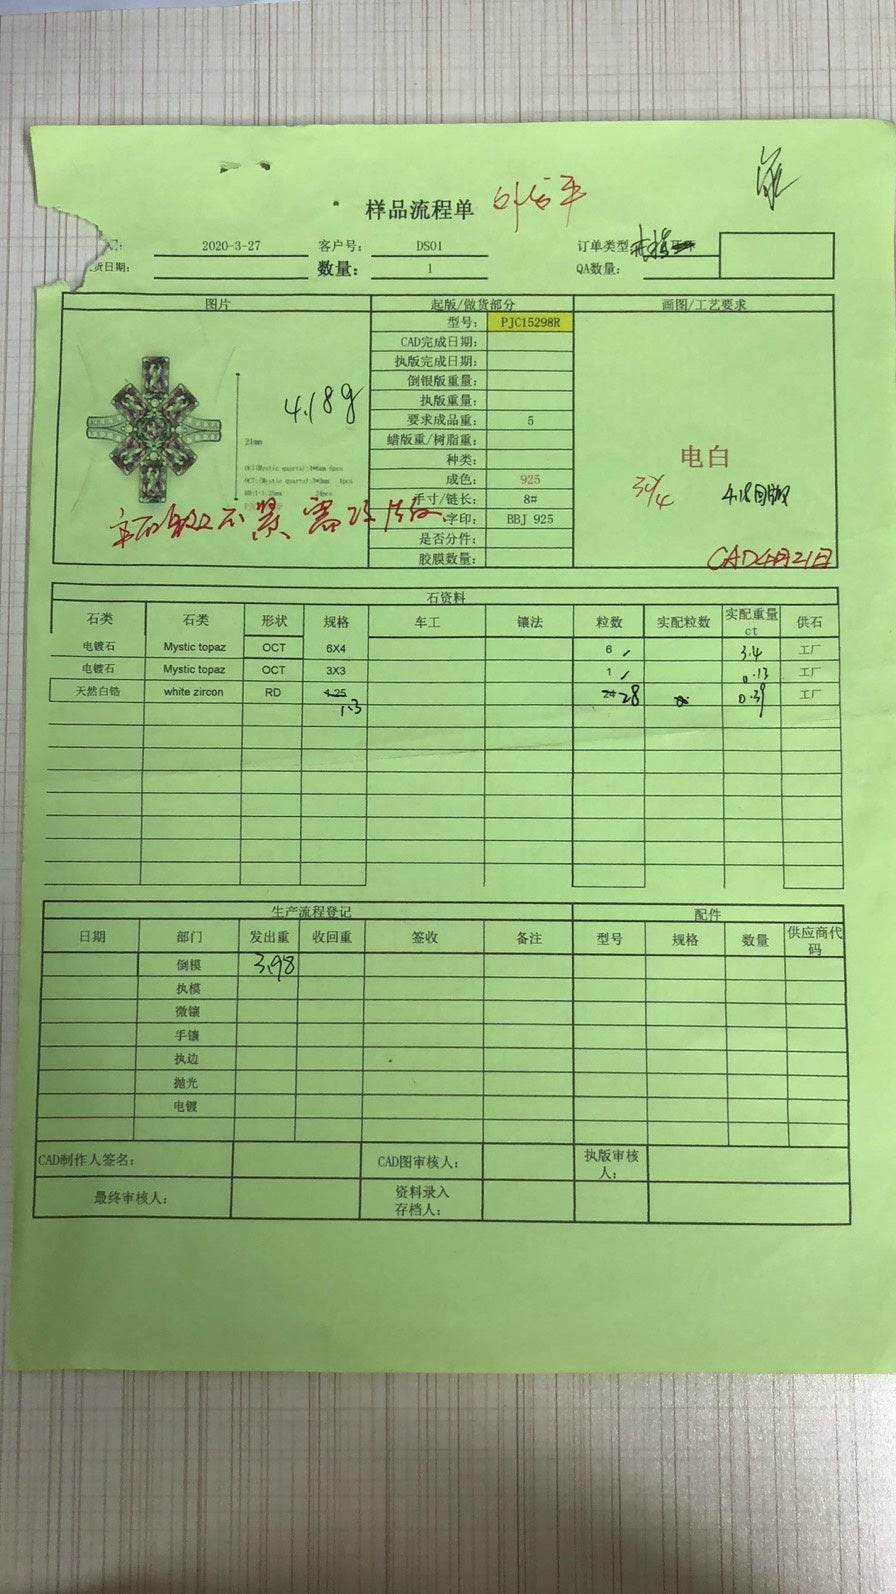 样品流程单
2020-3-27 客户号： DS01 订单类型
货日期： 数量： 1 QA数量：
图片 起版/做货部分 画图/工艺要求
型号： PJC15298R
CAD完成日期：
执版完成日期：
倒银版重量：
4.18g
执版重量：
要求成品重： 5
21mm
蜡版重/树脂重：
电白
种类：
成色： 925
手寸/链长： 8#
30/4 4.18回版
主石 不紧 需
字印： BBJ 925
是否分件：
胶膜数量：
CAD4月21日
石资料
石类 石类 形状 规格 车工 镶法 粒数 实配粒数 实配重量ct 供石
电镀石 Mystic topaz OCT 6X4 6 3.4 工厂
电镀石 Mystic topaz OCT 3X3 1 0.13 工厂
天然白锆 white zircon RD 1.25 24 28 0.39 工厂
1.3
生产流程登记 配件
日期 部门 发出重 收回重 签收 备注 型号 规格 数量 供应商代码
倒模 3.98
执模
微镶
手镶
执边
抛光
电镀
CAD制作人签名： CAD图审核人： 执版审核人：
最终审核人： 资料录入存档人：